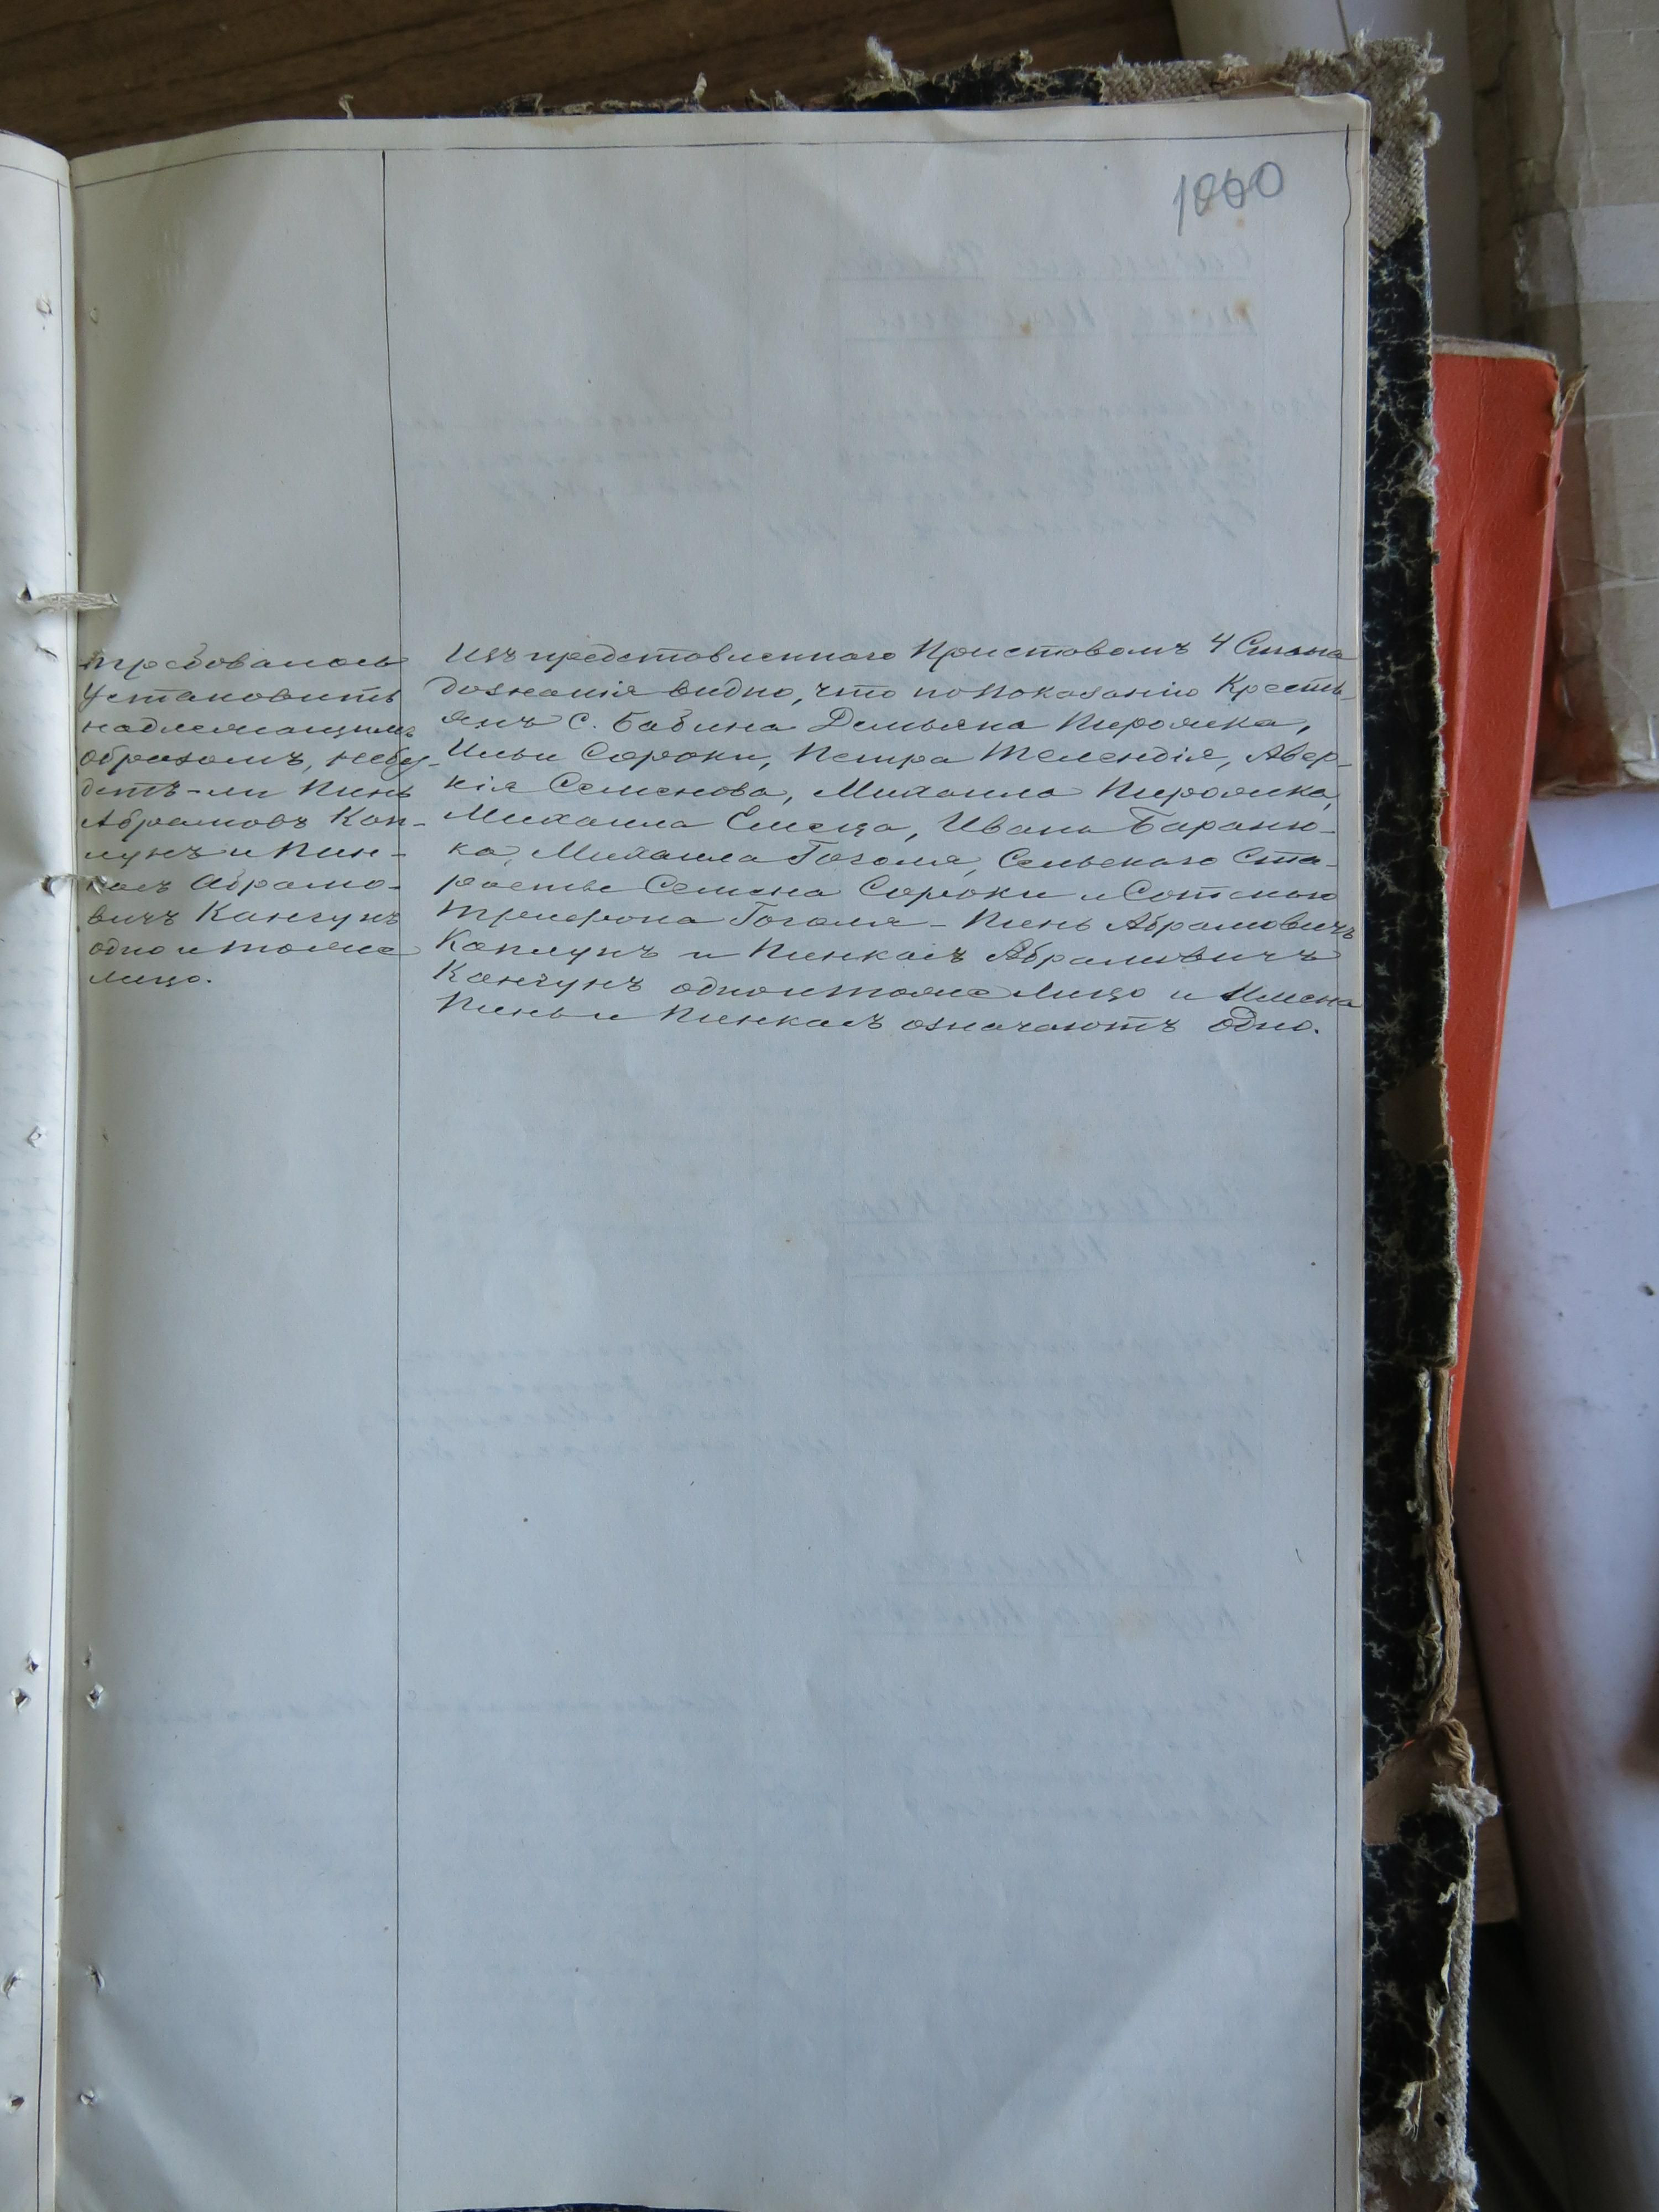 1060
требовалось
установить
надлежащимъ
образомъ, небу-
детъ-ли Пинь
Абрамовъ Кап-
лунъ и Пин-
касъ Абрамо-
вичъ Канчунъ
одно и тоже
лицо.
Изъ представленнаго Приставомъ 4 Стана
дознанія видно, что по показанію Кресть-
янъ с. Бабина Демьяна Пирожка,
Ильи Сороки, Петра Телендія, Авер-
кія Семенова, Михаила Пирожка,
Михаила Емеца, Ивана Бараню-
ка, Михаила Гоголя, Сельскаго Ста-
росты Семена Сороки и Сотскаго
Трифона Гоголя - Пинь Абрамовичъ
Каплунъ и Пинкасъ Абрамовичъ
Канчунъ одно и тоже лицо и Имена
Пинь и Пинкасъ означаютъ одно.